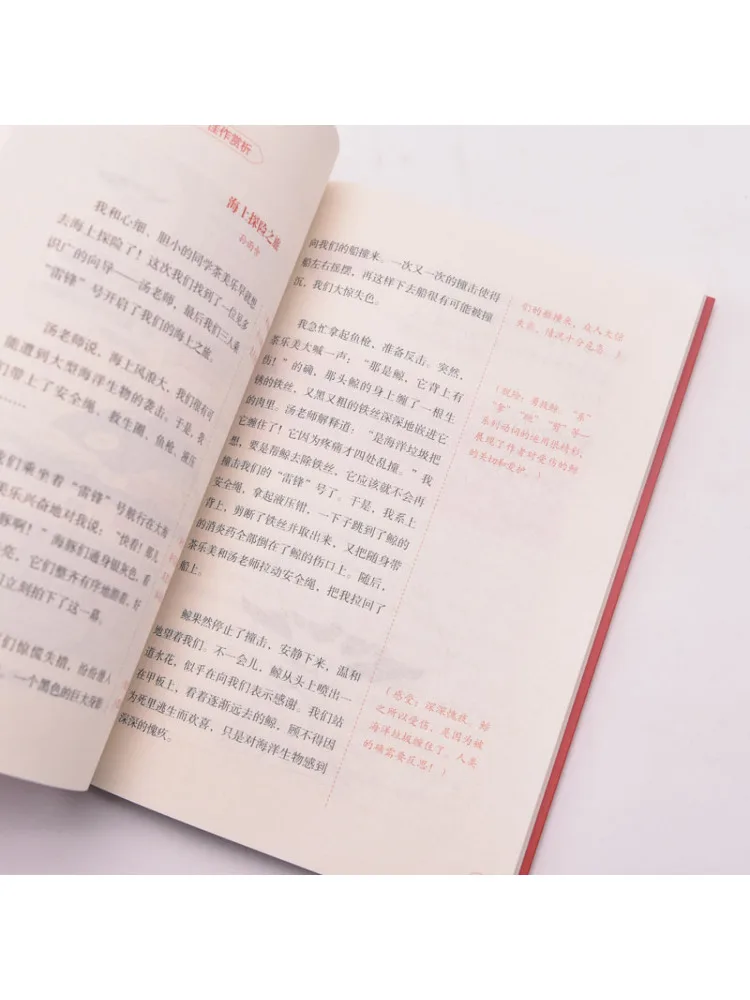 佳作赏析
海上探险之旅
我和心细、胆小的同学茶美乐早就想
去海上探险了！这次我们找到了一位见多
识广的向导——汤老师，最后我们三人乘
“雷锋”号开启了我们的海上之旅。
汤老师说，海上风浪大，我们很有可
能遭到大型海洋生物的袭击。于是，我
们带上了安全绳、救生圈、鱼枪、液压
我们乘坐着“雷锋”号航行在大海
美乐兴奋地对我说：“快看！那儿
豚啊！”海豚们通身银灰色，看
亮，它们整齐有序地跟着，好
们立刻拍下了这一幕。
们惊慌失措，纷纷潜入
一个黑色的巨大身影
向我们的船撞来。一次又一次的撞击使得
船左右摇摆，再这样下去船很有可能被撞
沉，我们大惊失色。
我急忙拿起鱼枪，准备反击。突然，
茶乐美大喊一声：“那是鲸，它背上有
伤！”的确，那头鲸的身上缠了一根生
锈的铁丝，又黑又粗的铁丝深深地嵌进它
的肉里。汤老师解释道：“是海洋垃圾把
它缠住了！它因为疼痛才四处乱撞。”我
想，要是帮鲸去除铁丝，它应该就不会再
撞击我们的“雷锋”号了。于是，我系上
安全绳，拿起液压钳，一下子跳到了鲸的
背上，剪断了铁丝并取出来，又把随身带
的消炎药全部倒在了鲸的伤口上。随后，
茶乐美和汤老师拉动安全绳，把我拉回了
船上。
鲸果然停止了撞击，安静下来，温和
地望着我们。不一会儿，鲸从头上喷出一
道水花，似乎在向我们表示感谢。我们站
在甲板上，看着逐渐远去的鲸，顾不得因
为死里逃生而欢喜，只是对海洋生物感到
深深的愧疚。
们的船撞来，众人大惊
失色，情况十分危急。）
系列动词的运用很精彩，
展现了作者对受伤的鲸
的关切和爱护。）
（感受：深深愧疚，鲸
之所以受伤，是因为被
海洋垃圾缠住了，人类
的确需要反思！）